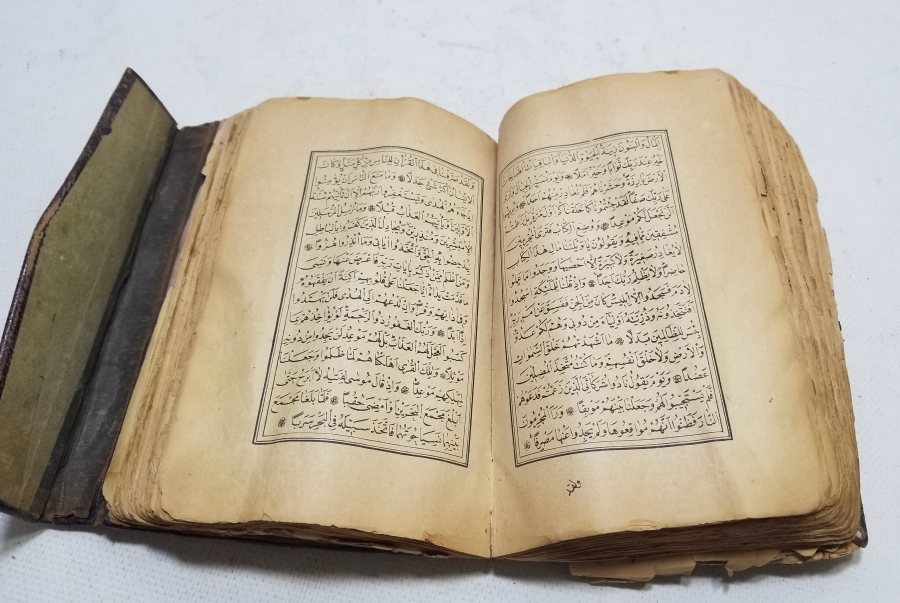 اَلْمَالُ وَالْبَنُونَ زِينَةُ الْحَيٰوةِ الدُّنْيَا وَالْبَاقِيَاتُ الصَّالِحَاتُ
خَيْرٌ عِنْدَ رَبِّكَ ثَوَابًا وَخَيْرٌ اَمَلًا ۞ وَيَوْمَ نُسَيِّرُ الْجِبَالَ وَتَرَى
الْاَرْضَ بَارِزَةً وَحَشَرْنَاهُمْ فَلَمْ نُغَادِرْ مِنْهُمْ اَحَدًا ۞ وَعُرِضُوا
عَلٰى رَبِّكَ صَفًّا لَقَدْ جِئْتُمُونَا كَمَا خَلَقْنَاكُمْ اَوَّلَ مَرَّةٍ بَلْ زَعَمْتُمْ
اَلَّنْ نَجْعَلَ لَكُمْ مَوْعِدًا ۞ وَوُضِعَ الْكِتَابُ فَتَرَى الْمُجْرِمِينَ
مُشْفِقِينَ مِمَّا فِيهِ وَيَقُولُونَ يَا وَيْلَتَنَا مَالِ هٰذَا الْكِتَابِ
لَا يُغَادِرُ صَغِيرَةً وَلَا كَبِيرَةً اِلَّا اَحْصٰيهَا وَوَجَدُوا مَا عَمِلُوا
حَاضِرًا وَلَا يَظْلِمُ رَبُّكَ اَحَدًا ۞ وَاِذْ قُلْنَا لِلْمَلٰئِكَةِ اسْجُدُوا
لِاٰدَمَ فَسَجَدُوا اِلَّا اِبْلِيسَ كَانَ مِنَ الْجِنِّ فَفَسَقَ عَنْ اَمْرِ رَبِّهِ
اَفَتَتَّخِذُونَهُ وَذُرِّيَّتَهُ اَوْلِيَاءَ مِنْ دُونِي وَهُمْ لَكُمْ عَدُوٌّ
بِئْسَ لِلظَّالِمِينَ بَدَلًا ۞ مَا اَشْهَدْتُهُمْ خَلْقَ السَّمٰوَاتِ
وَالْاَرْضِ وَلَا خَلْقَ اَنْفُسِهِمْ وَمَا كُنْتُ مُتَّخِذَ الْمُضِلِّينَ
عَضُدًا ۞ وَيَوْمَ يَقُولُ نَادُوا شُرَكَائِيَ الَّذِينَ زَعَمْتُمْ فَدَعَوْهُمْ
فَلَمْ يَسْتَجِيبُوا لَهُمْ وَجَعَلْنَا بَيْنَهُمْ مَوْبِقًا ۞ وَرَاَ الْمُجْرِمُونَ
النَّارَ فَظَنُّوا اَنَّهُمْ مُوَاقِعُوهَا وَلَمْ يَجِدُوا عَنْهَا مَصْرِفًا ۞
ولقد
وَلَقَدْ صَرَّفْنَا فِي هٰذَا الْقُرْاٰنِ لِلنَّاسِ مِنْ كُلِّ مَثَلٍ وَكَانَ
الْاِنْسَانُ اَكْثَرَ شَيْءٍ جَدَلًا ۞ وَمَا مَنَعَ النَّاسَ اَنْ يُؤْمِنُوا
اِذْ جَاءَهُمُ الْهُدٰى وَيَسْتَغْفِرُوا رَبَّهُمْ اِلَّا اَنْ تَأْتِيَهُمْ سُنَّةُ
الْاَوَّلِينَ اَوْ يَأْتِيَهُمُ الْعَذَابُ قُبُلًا ۞ وَمَا نُرْسِلُ الْمُرْسَلِينَ
اِلَّا مُبَشِّرِينَ وَمُنْذِرِينَ وَيُجَادِلُ الَّذِينَ كَفَرُوا بِالْبَاطِلِ
لِيُدْحِضُوا بِهِ الْحَقَّ وَاتَّخَذُوا اٰيَاتِي وَمَا اُنْذِرُوا هُزُوًا ۞
وَمَنْ اَظْلَمُ مِمَّنْ ذُكِّرَ بِاٰيَاتِ رَبِّهِ فَاَعْرَضَ عَنْهَا وَنَسِيَ
مَا قَدَّمَتْ يَدَاهُ اِنَّا جَعَلْنَا عَلٰى قُلُوبِهِمْ اَكِنَّةً اَنْ يَفْقَهُوهُ
وَفِي اٰذَانِهِمْ وَقْرًا وَاِنْ تَدْعُهُمْ اِلَى الْهُدٰى فَلَنْ يَهْتَدُوا
اِذًا اَبَدًا ۞ وَرَبُّكَ الْغَفُورُ ذُو الرَّحْمَةِ لَوْ يُؤَاخِذُهُمْ بِمَا
كَسَبُوا لَعَجَّلَ لَهُمُ الْعَذَابَ بَلْ لَهُمْ مَوْعِدٌ لَنْ يَجِدُوا مِنْ دُونِهِ
مَوْئِلًا ۞ وَتِلْكَ الْقُرٰى اَهْلَكْنَاهُمْ لَمَّا ظَلَمُوا وَجَعَلْنَا
لِمَهْلِكِهِمْ مَوْعِدًا ۞ وَاِذْ قَالَ مُوسٰى لِفَتٰيهُ لَا اَبْرَحُ حَتّٰى
اَبْلُغَ مَجْمَعَ الْبَحْرَيْنِ اَوْ اَمْضِيَ حُقُبًا ۞ فَلَمَّا بَلَغَا مَجْمَعَ
بَيْنِهِمَا نَسِيَا حُوتَهُمَا فَاتَّخَذَ سَبِيلَهُ فِي الْبَحْرِ سَرَبًا ۞